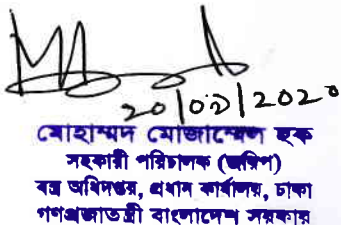 20/02/2020
মোহাম্মদ মোজাম্মেল হক
সহকারী পরিচালক (জরিপ)
বস্ত্র অধিদপ্তর, প্রধান কার্যালয়, ঢাকা
গণপ্রজাতন্ত্রী বাংলাদেশ সরকার